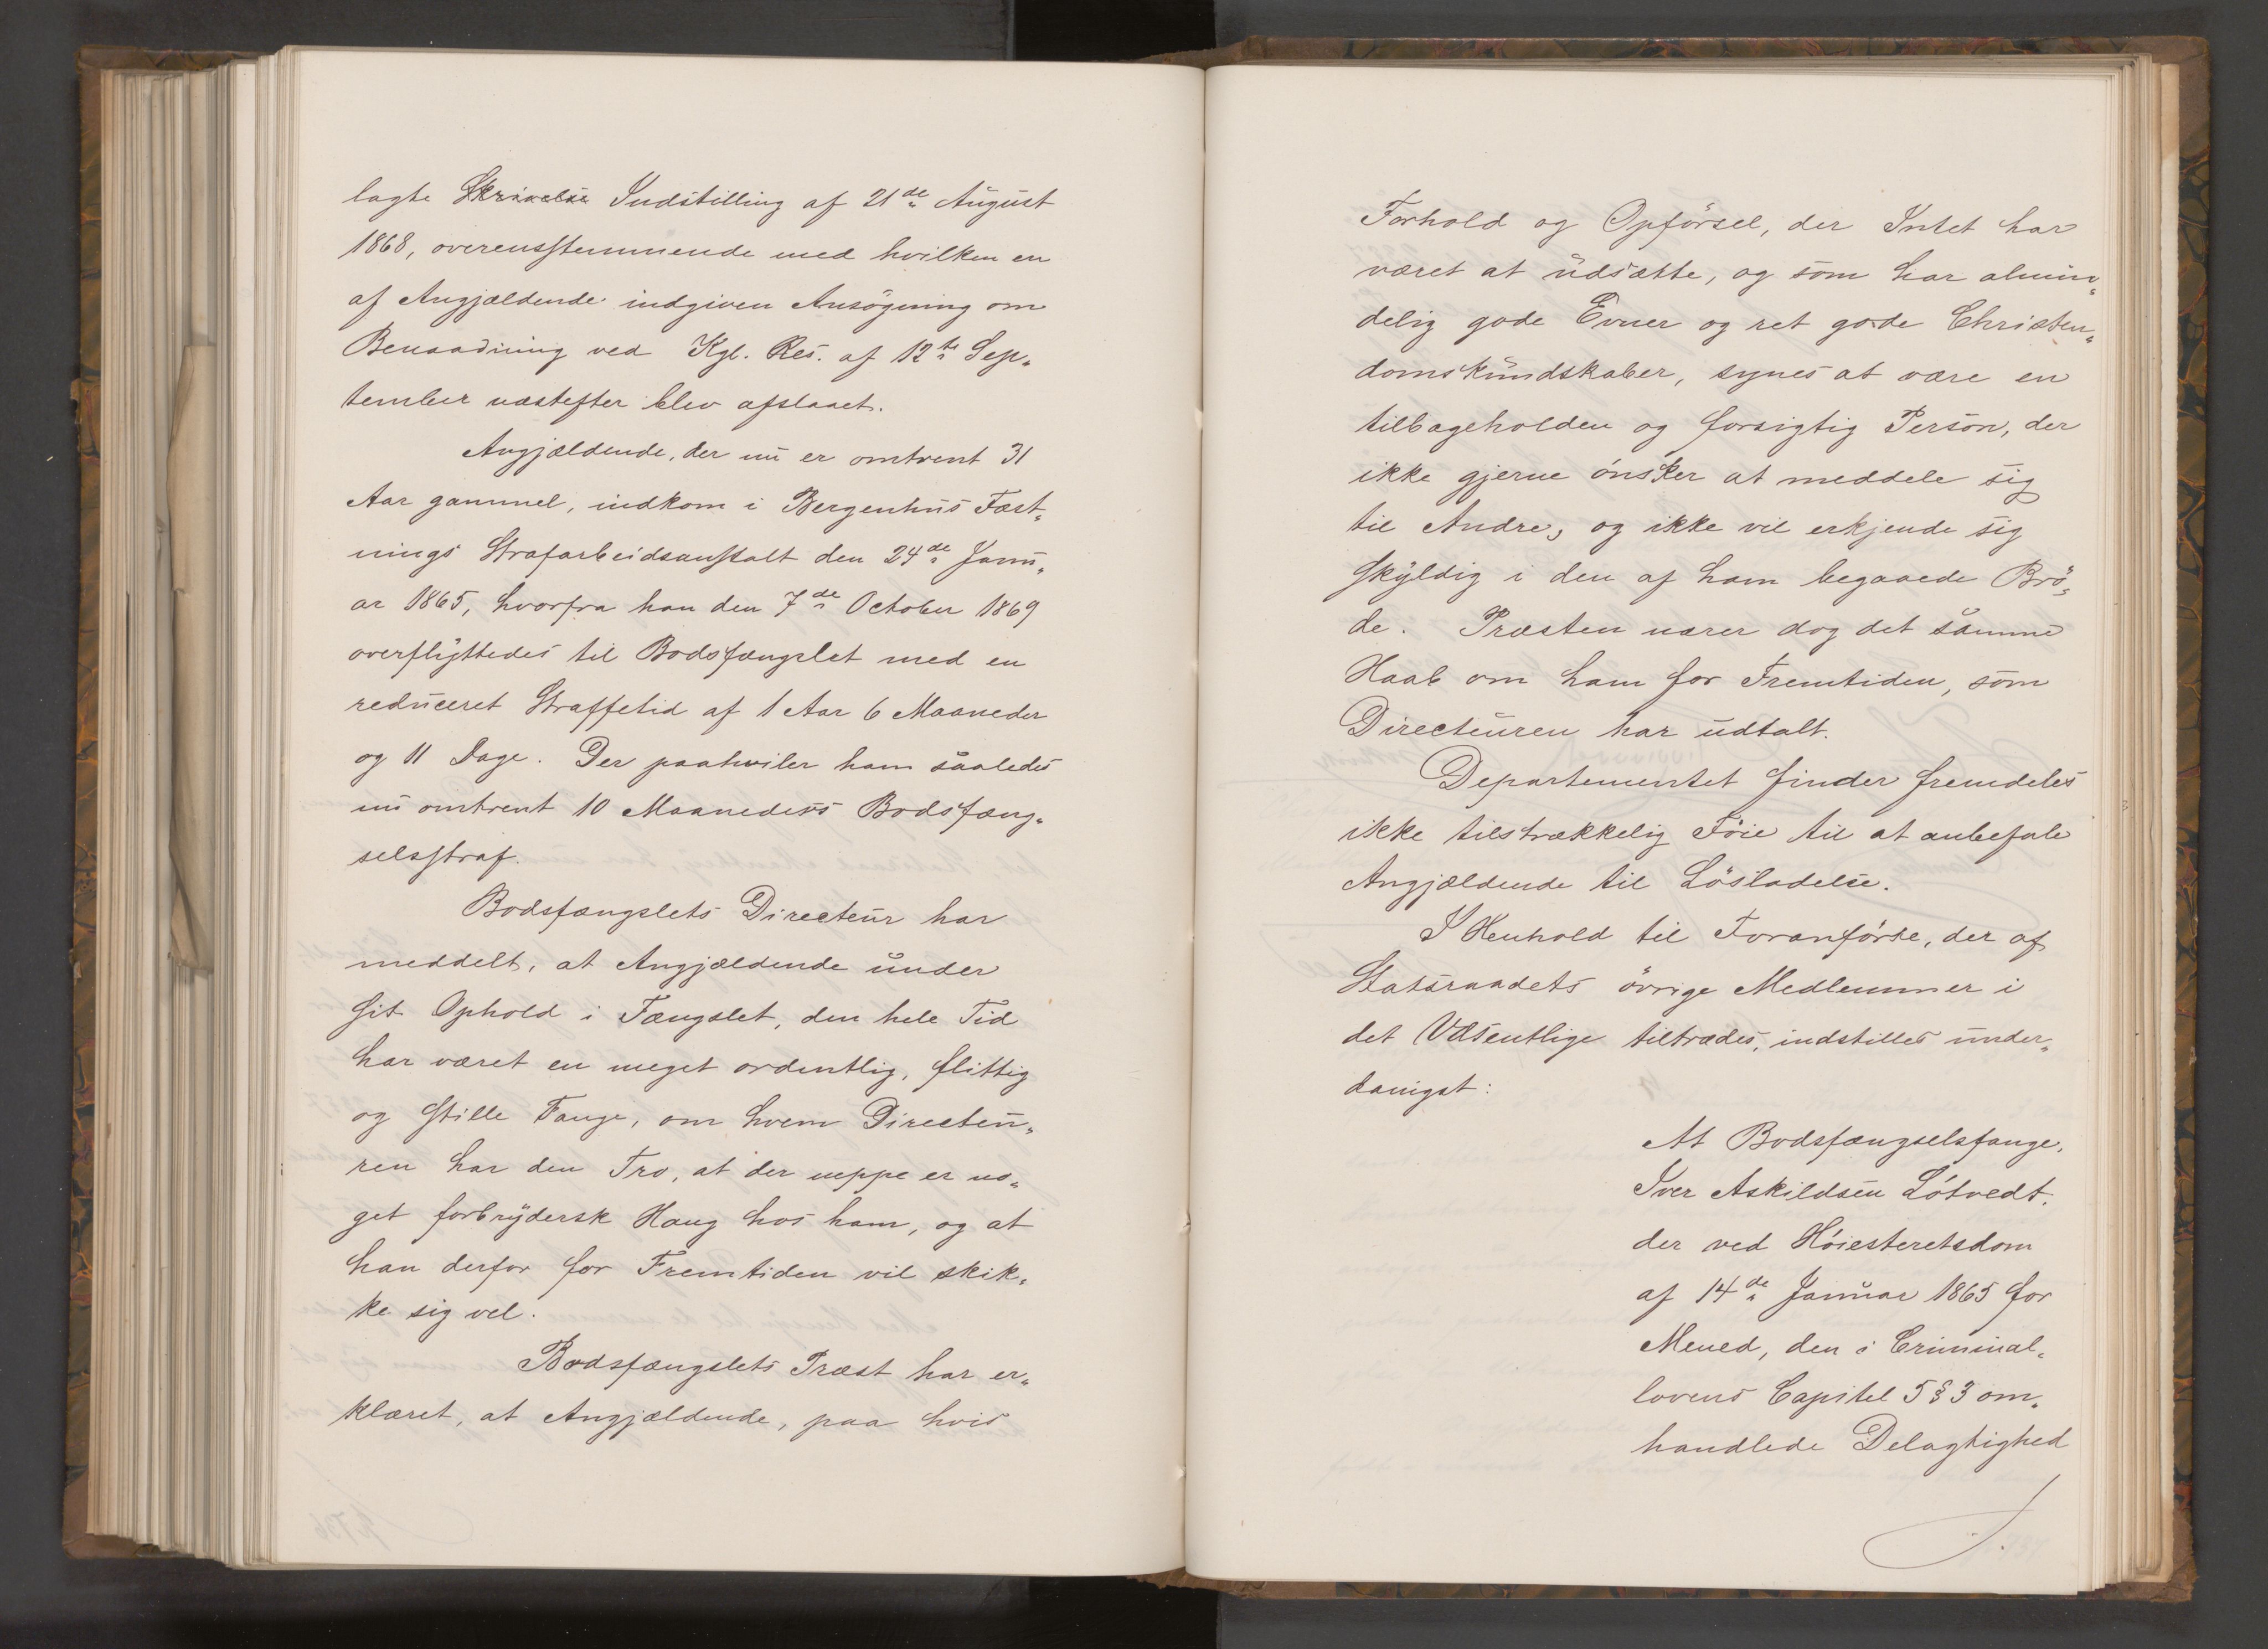 lagte Skrivelse Indstilling af 21de August
1868, overensstemmende med hvilken en
af Angjældende indgiven Ansögning om
Benaadning ved Kgl. Res. af 12te Sep„
tember næstefter blev afslaaet.
Angjældende, der nu er omtrent 31
Aar gammel, indkom i Bergenhus Fæst„
nings Strafarbeidsanstalt den 24de Janu„
ar 1865, hvorfra han den 7de October 1869
overflyttedes til Bodsfængslet med en
reduceret Straffetid af 1 Aar 6 Maaneder
og 11 Dage. Der paahviler ham saaledes
nu omtrent 10 Maaneders Bodsfæng„
selsstraf.
Bodsfængslets Directeur har
meddelt, at Angjældende under
sit Ophold i Fængslet, den hele Tid
har været en meget ordentlig, flittig
og stille Fange, om hvem Directeu„
ren har den Tro, at der neppe er no„
get forbrydersk Hang hos ham, og at
han derfor for Fremtiden vil skik„
ke sig vel.
Bodsfængslets Præst har er„
klæret, at Angjældende, paa hvis
Forhold og Opförsel, der Intet har
været at udsætte, og som har almin„
delig gode Evner og ret gode Christen„
domskundskaber, synes at være en
tilbageholden og forsigtig Person, der
ikke gjerne önsker at meddele sig
til Andre, og ikke vil erkjende sig
skyldig i den af ham begaaede Brö„
de. Præsten nærer dog det samme
Haab om ham for Fremtiden, som
Directeuren har udtalt.
Departementet finder fremdeles
ikke tilstrækkelig Föie til at anbefale
Angjældende til Lösladelse.
I Henhold til Foranförte, der af
Statsraadets övrige Medlemmer i
det Væsentlige tiltrædes, indstilles under„
danigst:
At Bodsfængselsfange,
Iver Askildsen Lötvedt,
der ved Höiesteretsdom
af 14de Januar 1865 for
Mened, den i Criminal„
lovens Capitel 5 § 3 om„
handlede Delagtighed